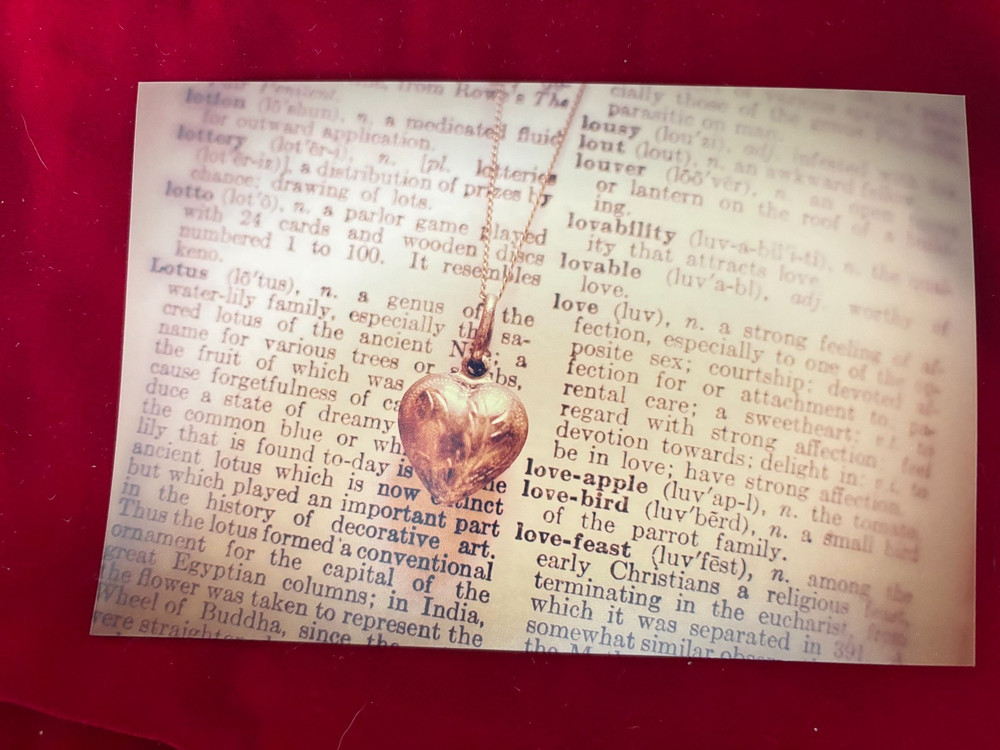 from Rowe's The
lotion (lō'shun), n. a medicated fluid
for outward application.
lottery (lot'ẽr-i), n. [pl. lotteries
(lot'ẽr-iz)], a distribution of prizes by
chance; drawing of lots.
lotto (lot'ō), n. a parlor game played
with 24 cards and wooden discs
numbered 1 to 100. It resembles
keno.
Lotus (lō'tus), n. a genus of the
water-lily family, especially the sa-
cred lotus of the ancient a
name for various trees or
the fruit of which was
cause forgetfulness of
duce a state of dreamy
the common blue or
lily that is found to-day is
ancient lotus which is now
but which played an important part
in the history of decorative art.
Thus the lotus formed a conventional
ornament for the capital of the
great Egyptian columns; in India,
the flower was taken to represent the
Wheel of Buddha, since the
were straighter
cially those of the
parasitic on man.
lousy (lou'zi), adj. infested with
lout (lout), n. an awkward fellow
louver (lōō'vẽr), n. an open
or lantern on the roof of a
ing.
lovability (luv-a-bil'i-ti), n. the
ity that attracts love.
lovable (luv'a-bl), adj. worthy of
love.
love (luv), n. a strong feeling of af-
fection, especially to one of the
posite sex; courtship; devoted
fection for or attachment to
rental care; a sweetheart: v.t. to
regard with strong affection
devotion towards; delight in: v.i. to
be in love; have strong affection.
love-apple (luv'ap-l), n. the tomato
love-bird (luv'bẽrd), n. a small bird
of the parrot family.
love-feast (luv'fēst), n. among the
early Christians a religious feast,
terminating in the eucharist, from
which it was separated in 391
somewhat similar
the